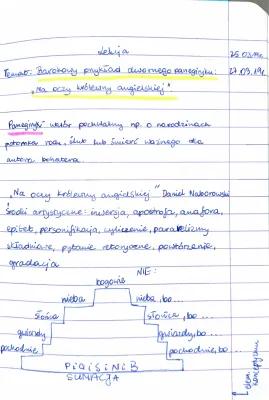 Lekcja
25.03.19r.
Temat: Barokowy przykład dwornego panegiryku:
27.03.19r.
"Na oczy królewny angielskiej".
Panegiryk - utwór pochwalny np. o narodzinach
potomka rodu, ślub lub śmierć ważnego dla
autora bohatera.
"Na oczy królewny angielskiej" Daniel Naborowski
Środki artystyczne: inwersja, apostrofa, anafora,
epitet, personifikacja, wyliczenie, paralelizmy
składniowe, pytanie retoryczne, powtórzenie,
gradacja
NIE:
bogowie
nieba nieba, bo...
słońca słońca, bo...
gwiazdy gwiazdy, bo...
pochodnie pochodnie, bo...
P i G i S i N i B
SUMACJA
elem. konceptyzmu